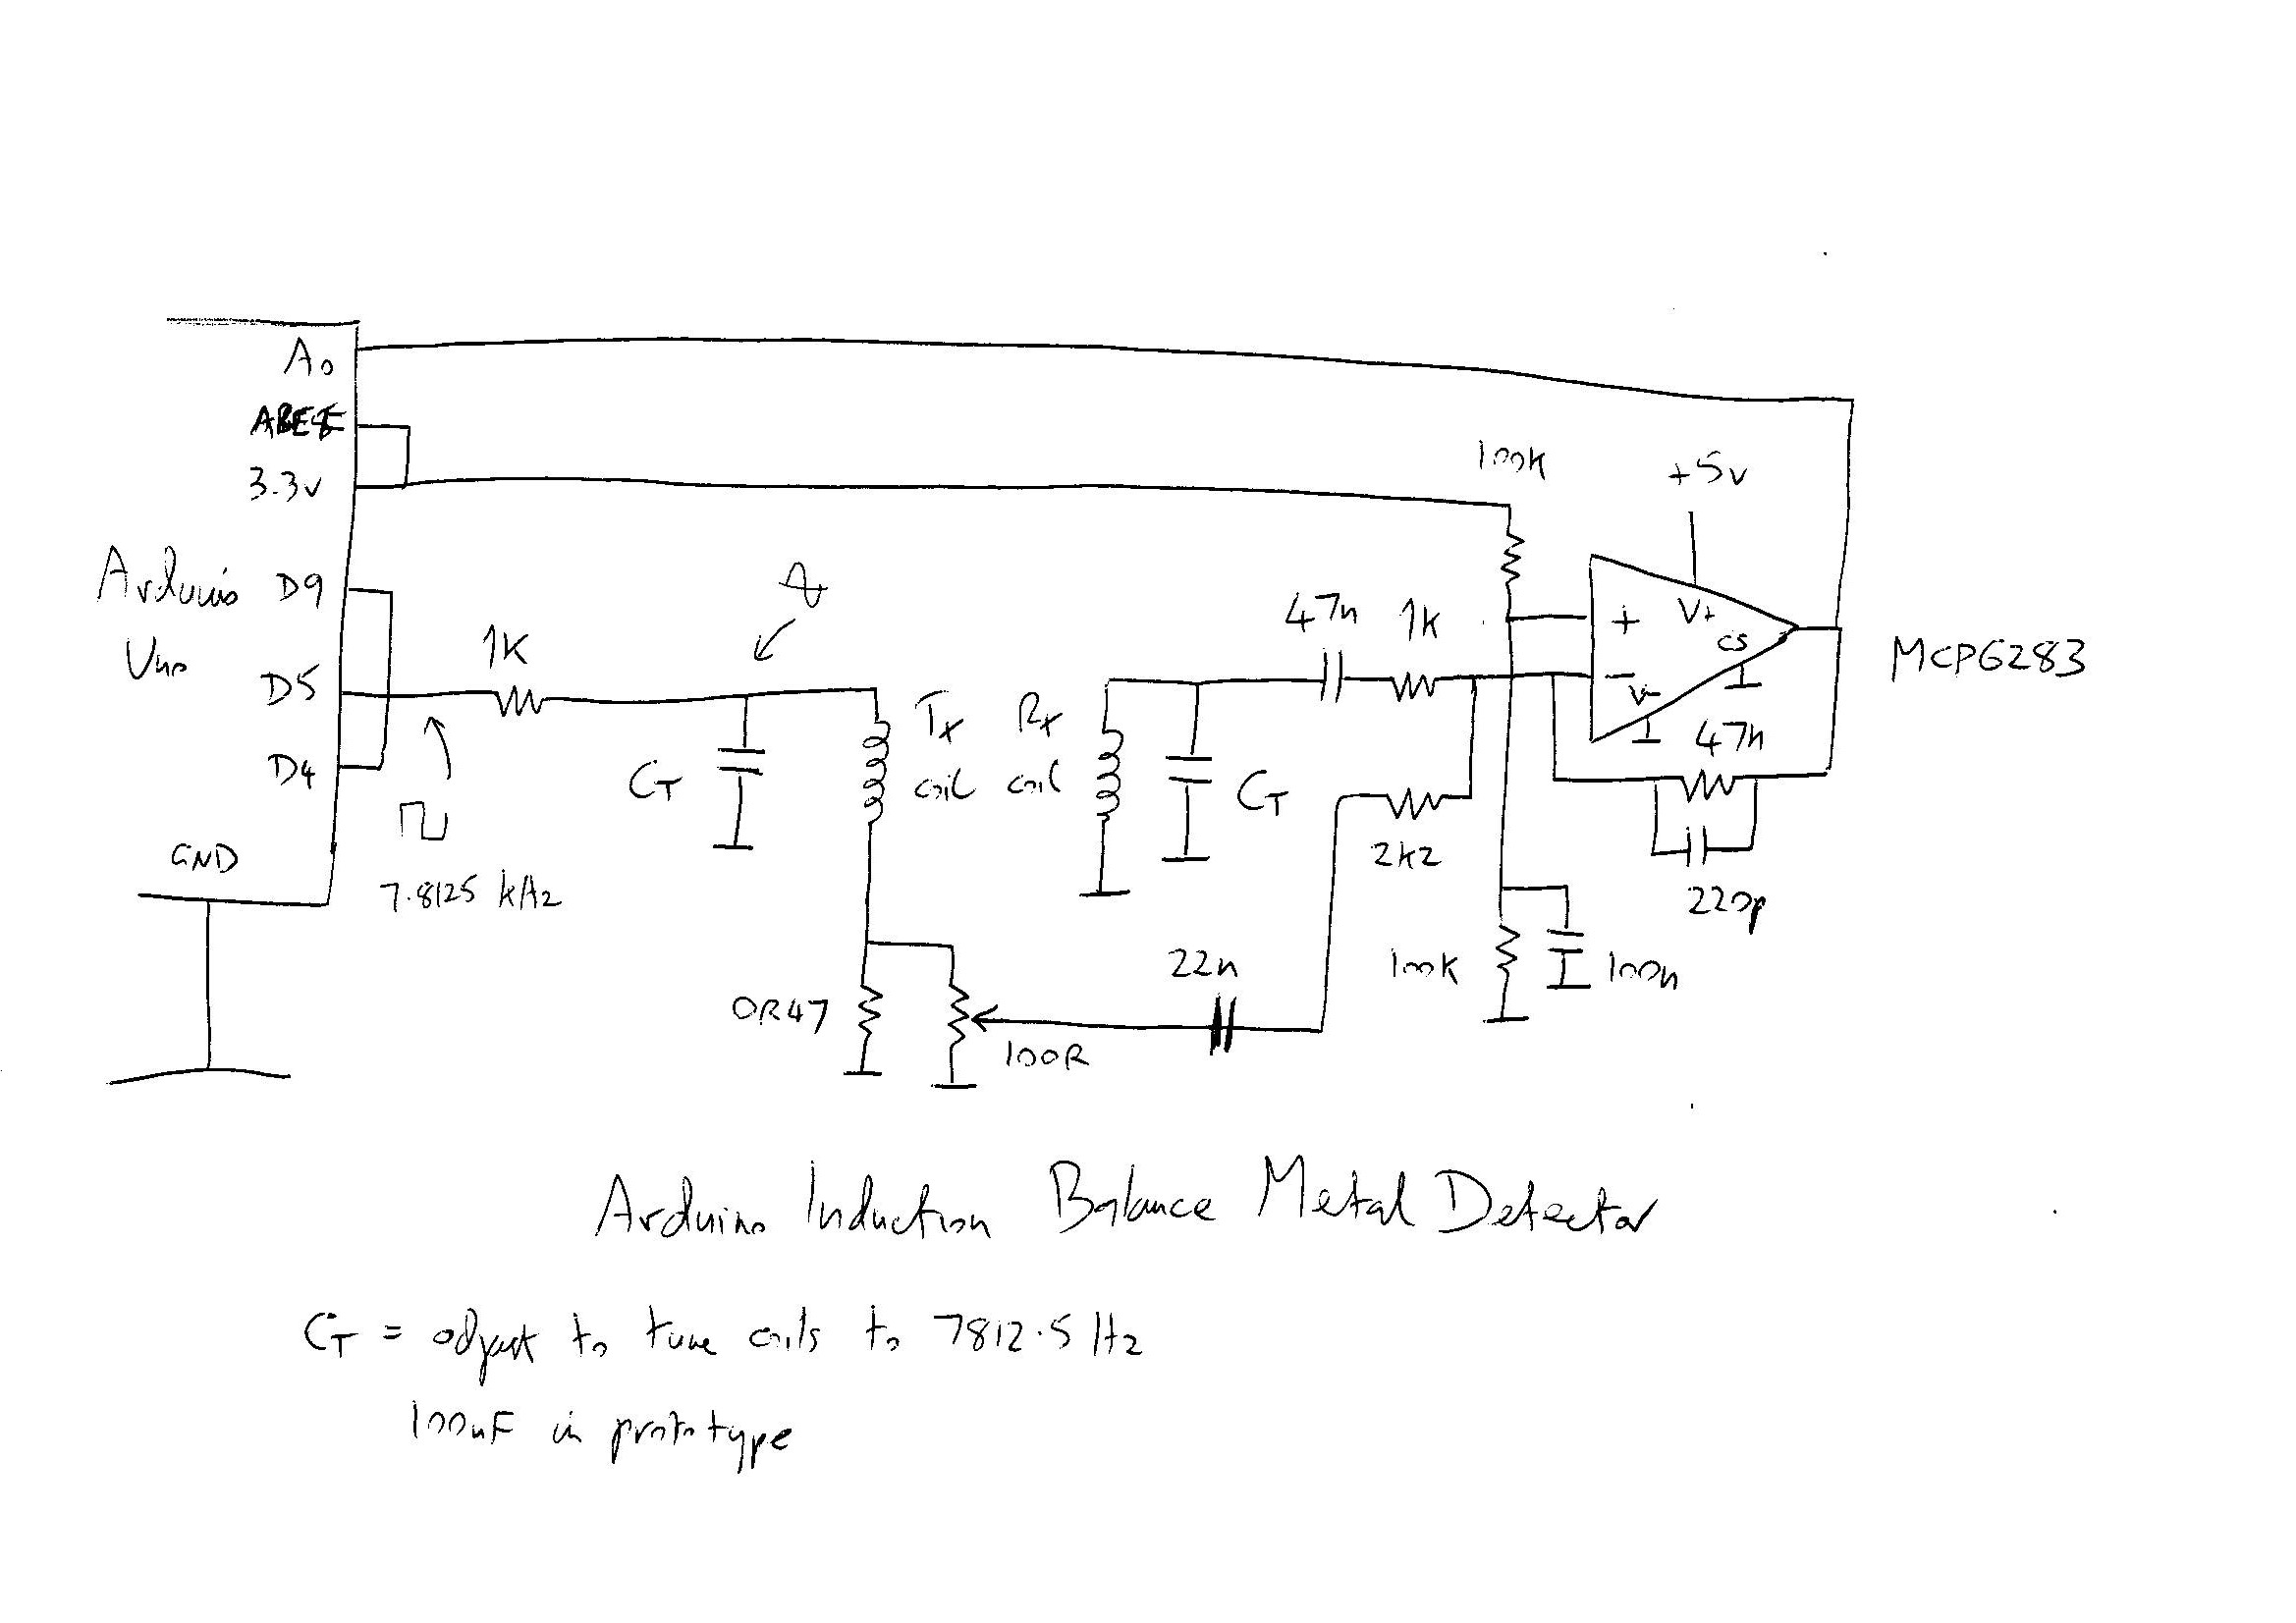 A0
AREF
3.3v
100k
+5v
Arduino
Uno
D9
D5
D4
GND
1K
7.8125 kHz
CT
Tx
coil
Rx
coil
CT
47n
1k
+
V+
CS
-
V-
MCP6283
47n
220p
2k2
22n
0R47
100R
100K
100n
Arduino Induction Balance Metal Detector
CT = adjust to tune coils to 7812.5 Hz
100nF in prototype